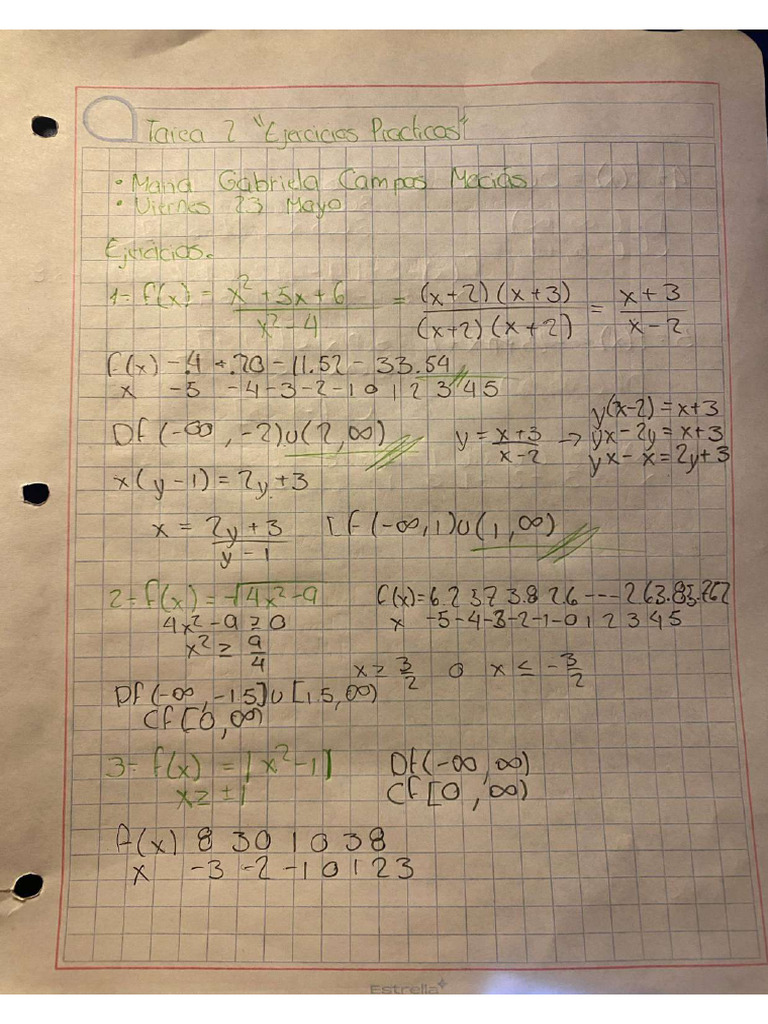 Tarea 2 "Ejercicios Practicos"
• Maria Gabriela Campos Macias
• Viernes 23 Mayo
Ejercicios.
1- f(x) = x² + 5x + 6 / x² - 4 = (x+2) (x+3) / (x+2) (x+2) = x + 3 / x - 2
f(x) - .4 + .20 - 11.52 - 33.54
x -5 -4 -3 -2 -1 0 1 2 3 4 5
Df (-∞, -2) ∪ (2, ∞) y = x+3 / x-2 →
y(x-2) = x+3
yx - 2y = x+3
yx - x = 2y+3
x(y-1) = 2y+3
x = 2y+3 / y-1 If (-∞, 1) ∪ (1, ∞)
2- f(x) = √4x² - 9 f(x) = 6.2 5 7 3.8 2.6 --- 2 6 3.85.262
4x² - 9 ≥ 0 x -5 -4 -3 -2 -1 -0 1 2 3 4 5
x² ≥ 9/4
x ≥ 3/2 o x ≤ - 3/2
Df (-∞, -1.5] ∪ [1.5, ∞)
Cf [0, ∞)
3- f(x) = |x² - 1| Df (-∞, ∞)
x ≥ ± 1 Cf [0, ∞)
f(x) 8 3 0 1 0 3 8
x -3 -2 -1 0 1 2 3
Estrella